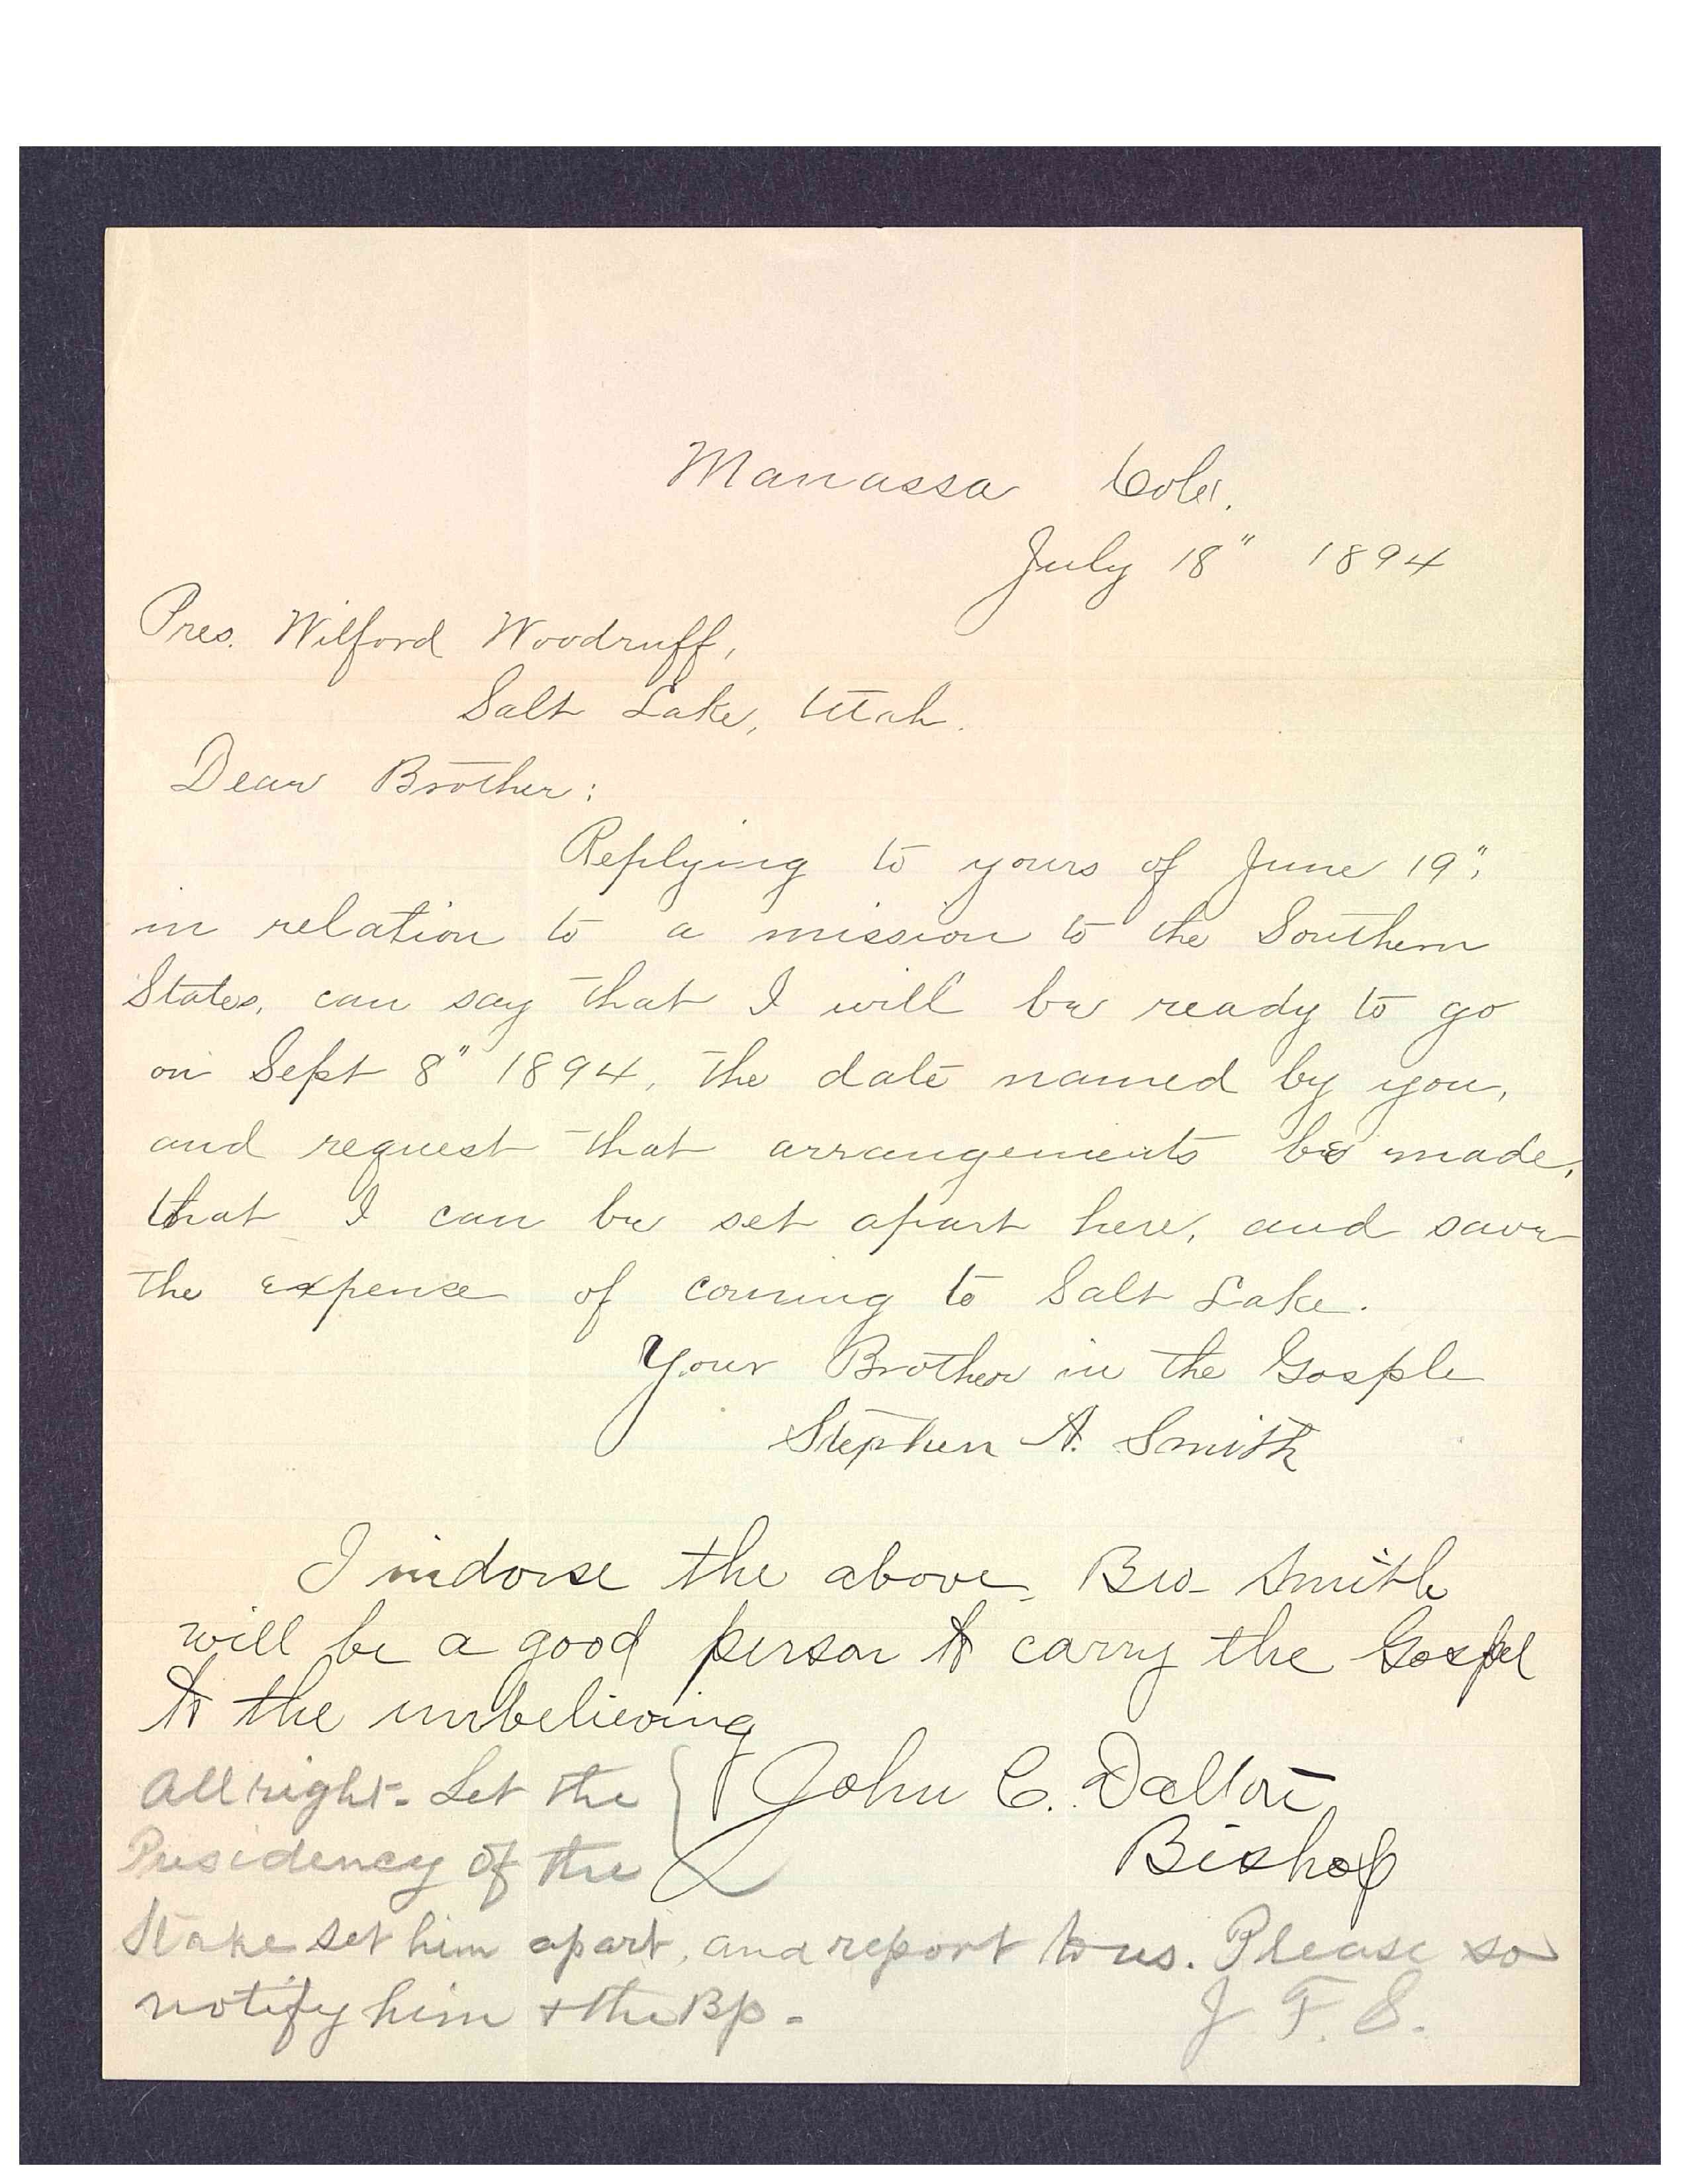 Manassa Colo.
July 18" 1894
Pres. Wilford Woodruff,
Salt Lake, Utah.
Dear Brother:
Replying to yours of June 19",
in relation to a mission to the Southern
States, can say that I will be ready to go
on Sept 8" 1894, the date named by you,
and request that arrangements be made,
that I can be set apart here, and save
the expense of coming to Salt Lake.
Your Brother in the Gosple
Stephen A. Smith
I indorse the above. Bro Smith
will be a good person to carry the Gospel
to the unbelieving
John C. Dalton
Bishop
All right. Let the
Presidency of the
Stake set him apart, and report to us. Please so
notify him + the Bp.
J. F. S.